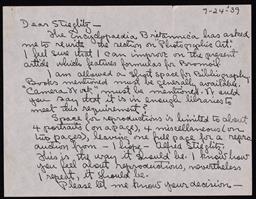 7-24-39
Dear Stieglitz —
The Encyclopaedia Britannica has asked
me to rewrite the "section on Photographic Art".
I feel sure that I can improve on the present
article which features formulas for Bromoil
I am allowed a short space for Bibliography.
Books mentioned must be generally available.
"Camera Work" must be mentioned. Would
you say that it is in enough libraries to
meet this requirement.
Space for reproductions is limited to about
4 portraits (on a page), 4 miscellaneous (on
two pages), leaving one full page for a repro-
duction from — I hope — Alfred Stieglitz.
This is the way it should be. I know how
you feel about reproductions, nevertheless
I repeat, it should be.
Please let me know your decision —